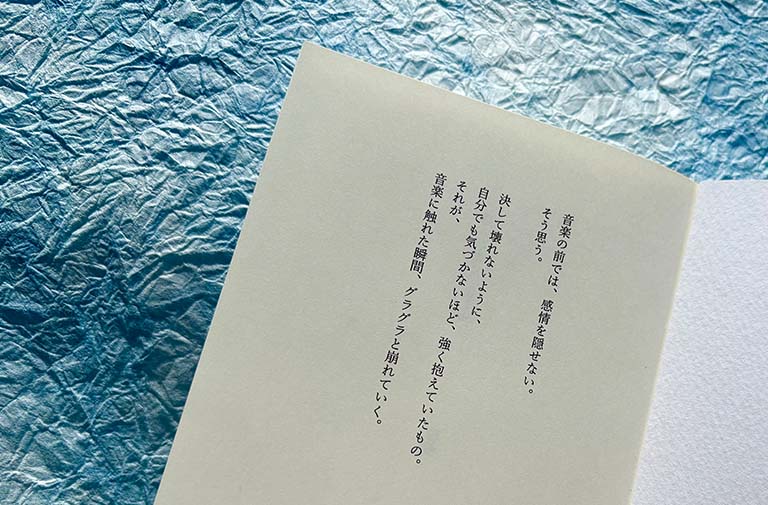 音楽の前では、感情を隠せない。
そう思う。
決して壊れないように、
自分でも気づかないほど、強く抱えていたもの。
それが、
音楽に触れた瞬間、グラグラと崩れていく。